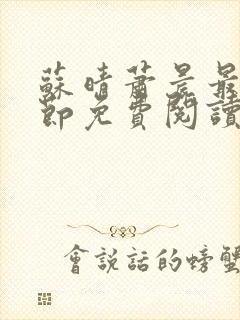 蘇晴蕭景最
節免費閱讀
會說話的螃蟹